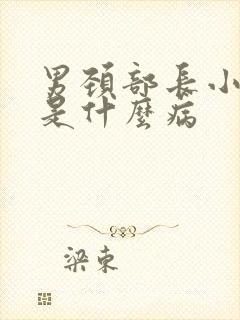 男颈部长小
是什麼病
梁東